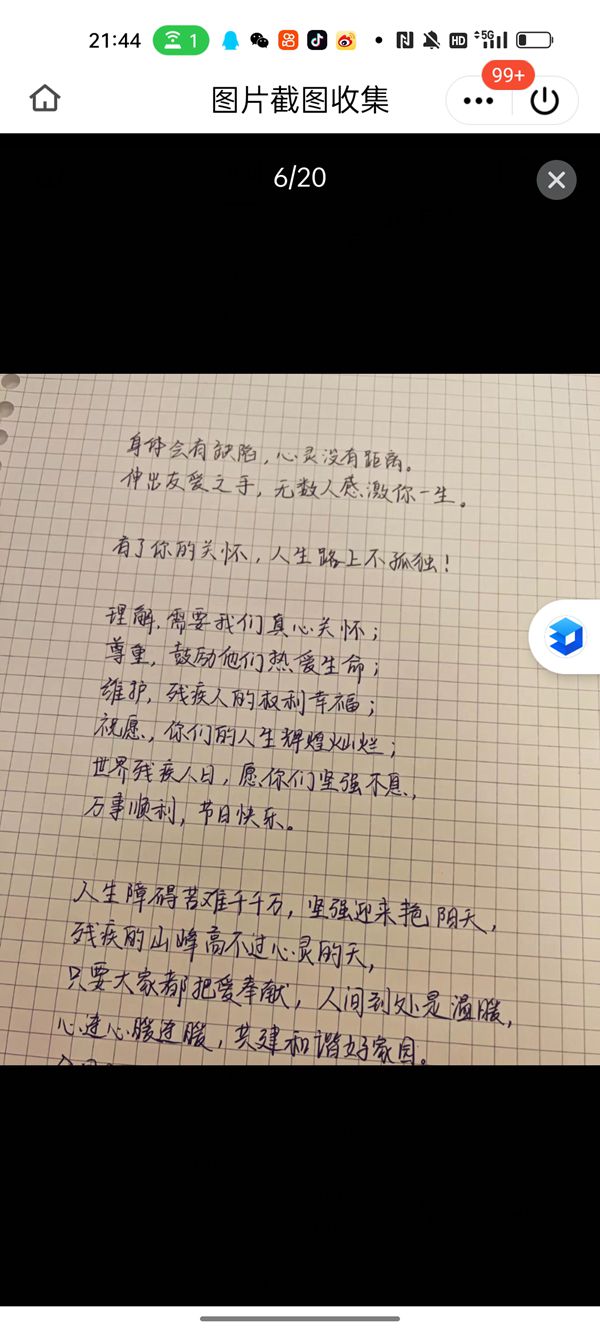 21:44 1 HD 5G
图片截图收集
99+
6/20
身体会有缺陷，心灵没有距离。
伸出友爱之手，无数人感激你一生。
有了你的关怀，人生路上不孤独！
理解，需要我们真心关怀；
尊重，鼓励他们热爱生命；
维护，残疾人的权利幸福；
祝愿，你们的人生辉煌灿烂；
世界残疾人日，愿你们坚强不息，
万事顺利，节日快乐。
人生障碍苦难千千万，坚强迎来艳阳天，
残疾的山峰高不过心灵的天，
只要大家都把爱奉献，人间到处是温暖，
心连心暖连暖，共建和谐好家园。